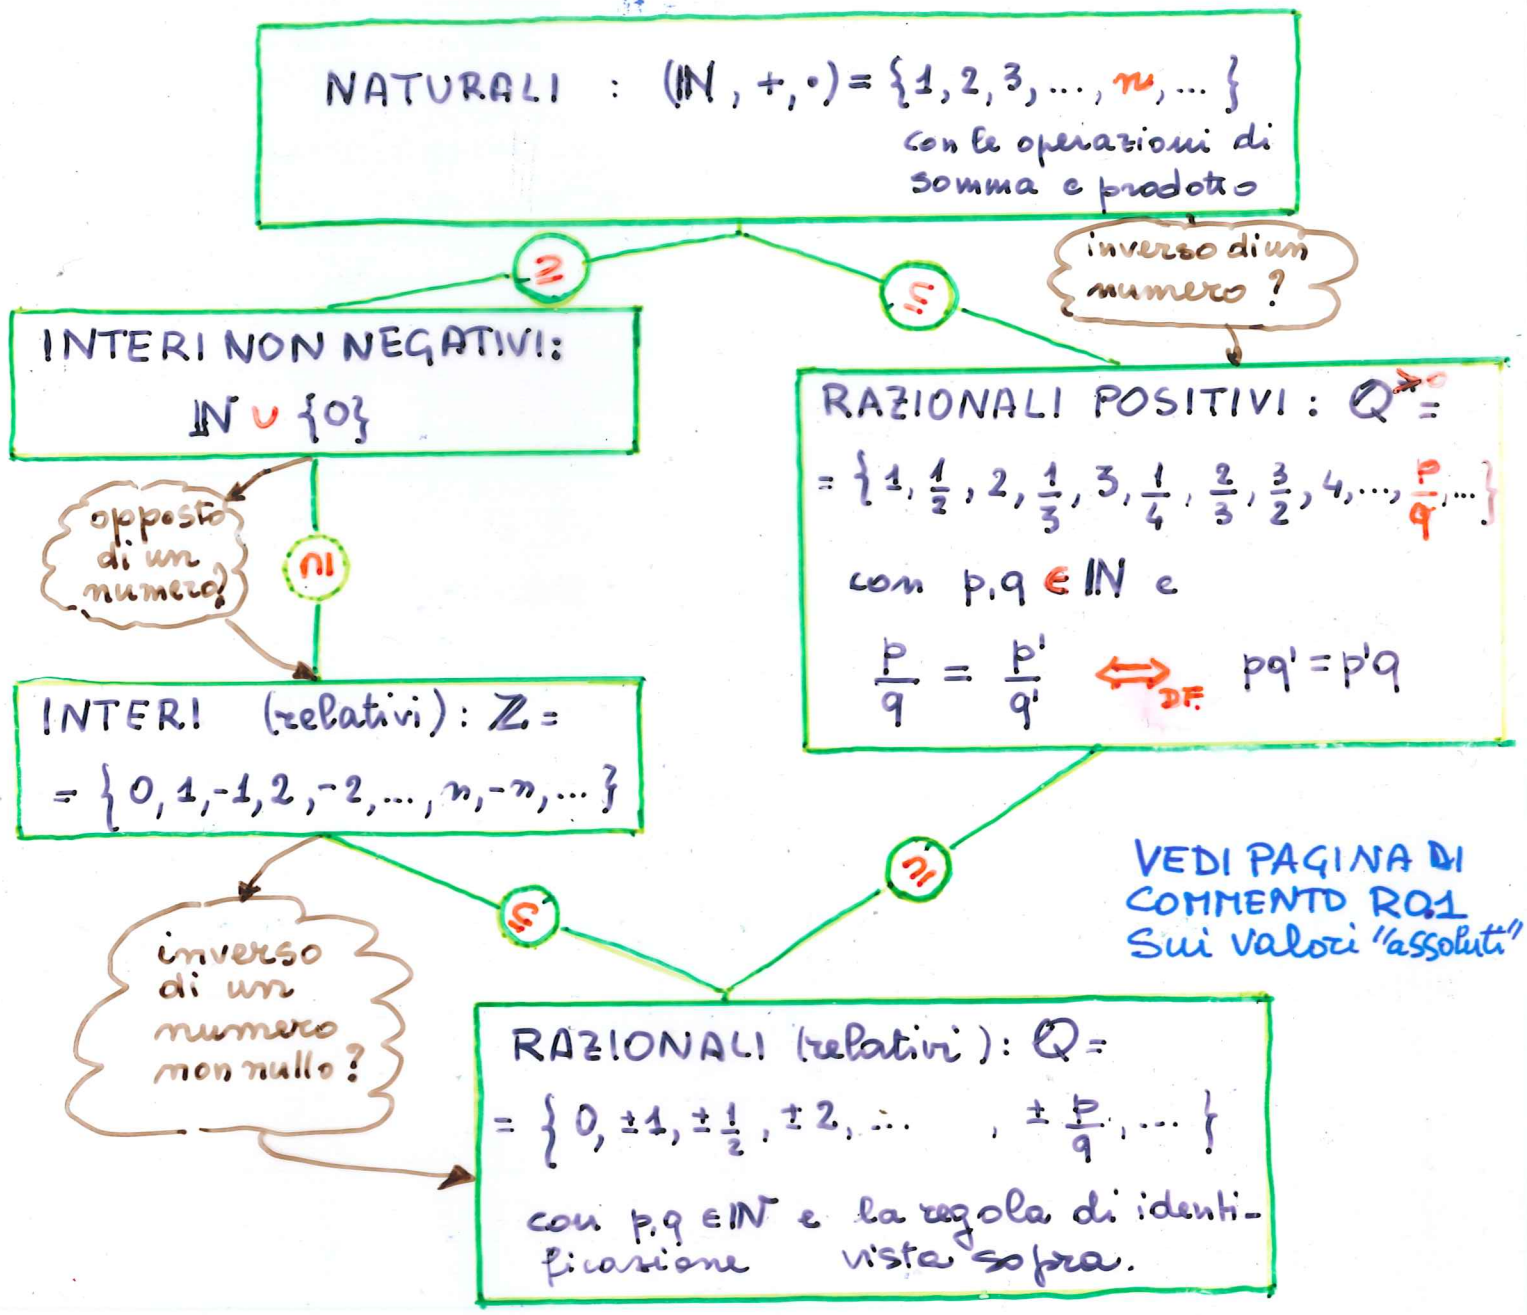 NATURALI : (ℕ, +, ·) = {1, 2, 3, ..., n, ... }
con le operazioni di
somma e prodotto
⊆
⊆
inverso di un
numero ?
INTERI NON NEGATIVI:
ℕ ∪ {0}
RAZIONALI POSITIVI : ℚ^{>0} =
= { 1, 1/2, 2, 1/3, 3, 1/4, 2/3, 3/2, 4, ..., p/q, ... }
con p, q ∈ ℕ e
p/q = p'/q' ⟺ DF. pq' = p'q
opposto
di un
numero?
⊆
INTERI (relativi) : ℤ =
= { 0, 1, -1, 2, -2, ..., n, -n, ... }
⊆
⊆
VEDI PAGINA DI
COMMENTO RQ1
Sui valori "assoluti"
inverso
di un
numero
non nullo ?
RAZIONALI (relativi) : ℚ =
= { 0, ±1, ± 1/2, ± 2, ... , ± p/q, ... }
con p, q ∈ ℕ e la regola di identi-
ficazione vista sopra.